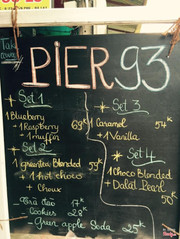 Take
away
PIER 93
Set 1
1 Blueberry
+ 1 Raspberry
+ 1 muffin
69K
Set 2
1 greentea Blended
+ 1 hot choco
+ Choux
59K
Set 3
1 Caramel
+ 1 Vanilla
54K
Set 4
1 Choco Blended
+ Dalat Pearl
50K
Trà đào 17K
- Cookies 28K
- Green apple Soda 25K